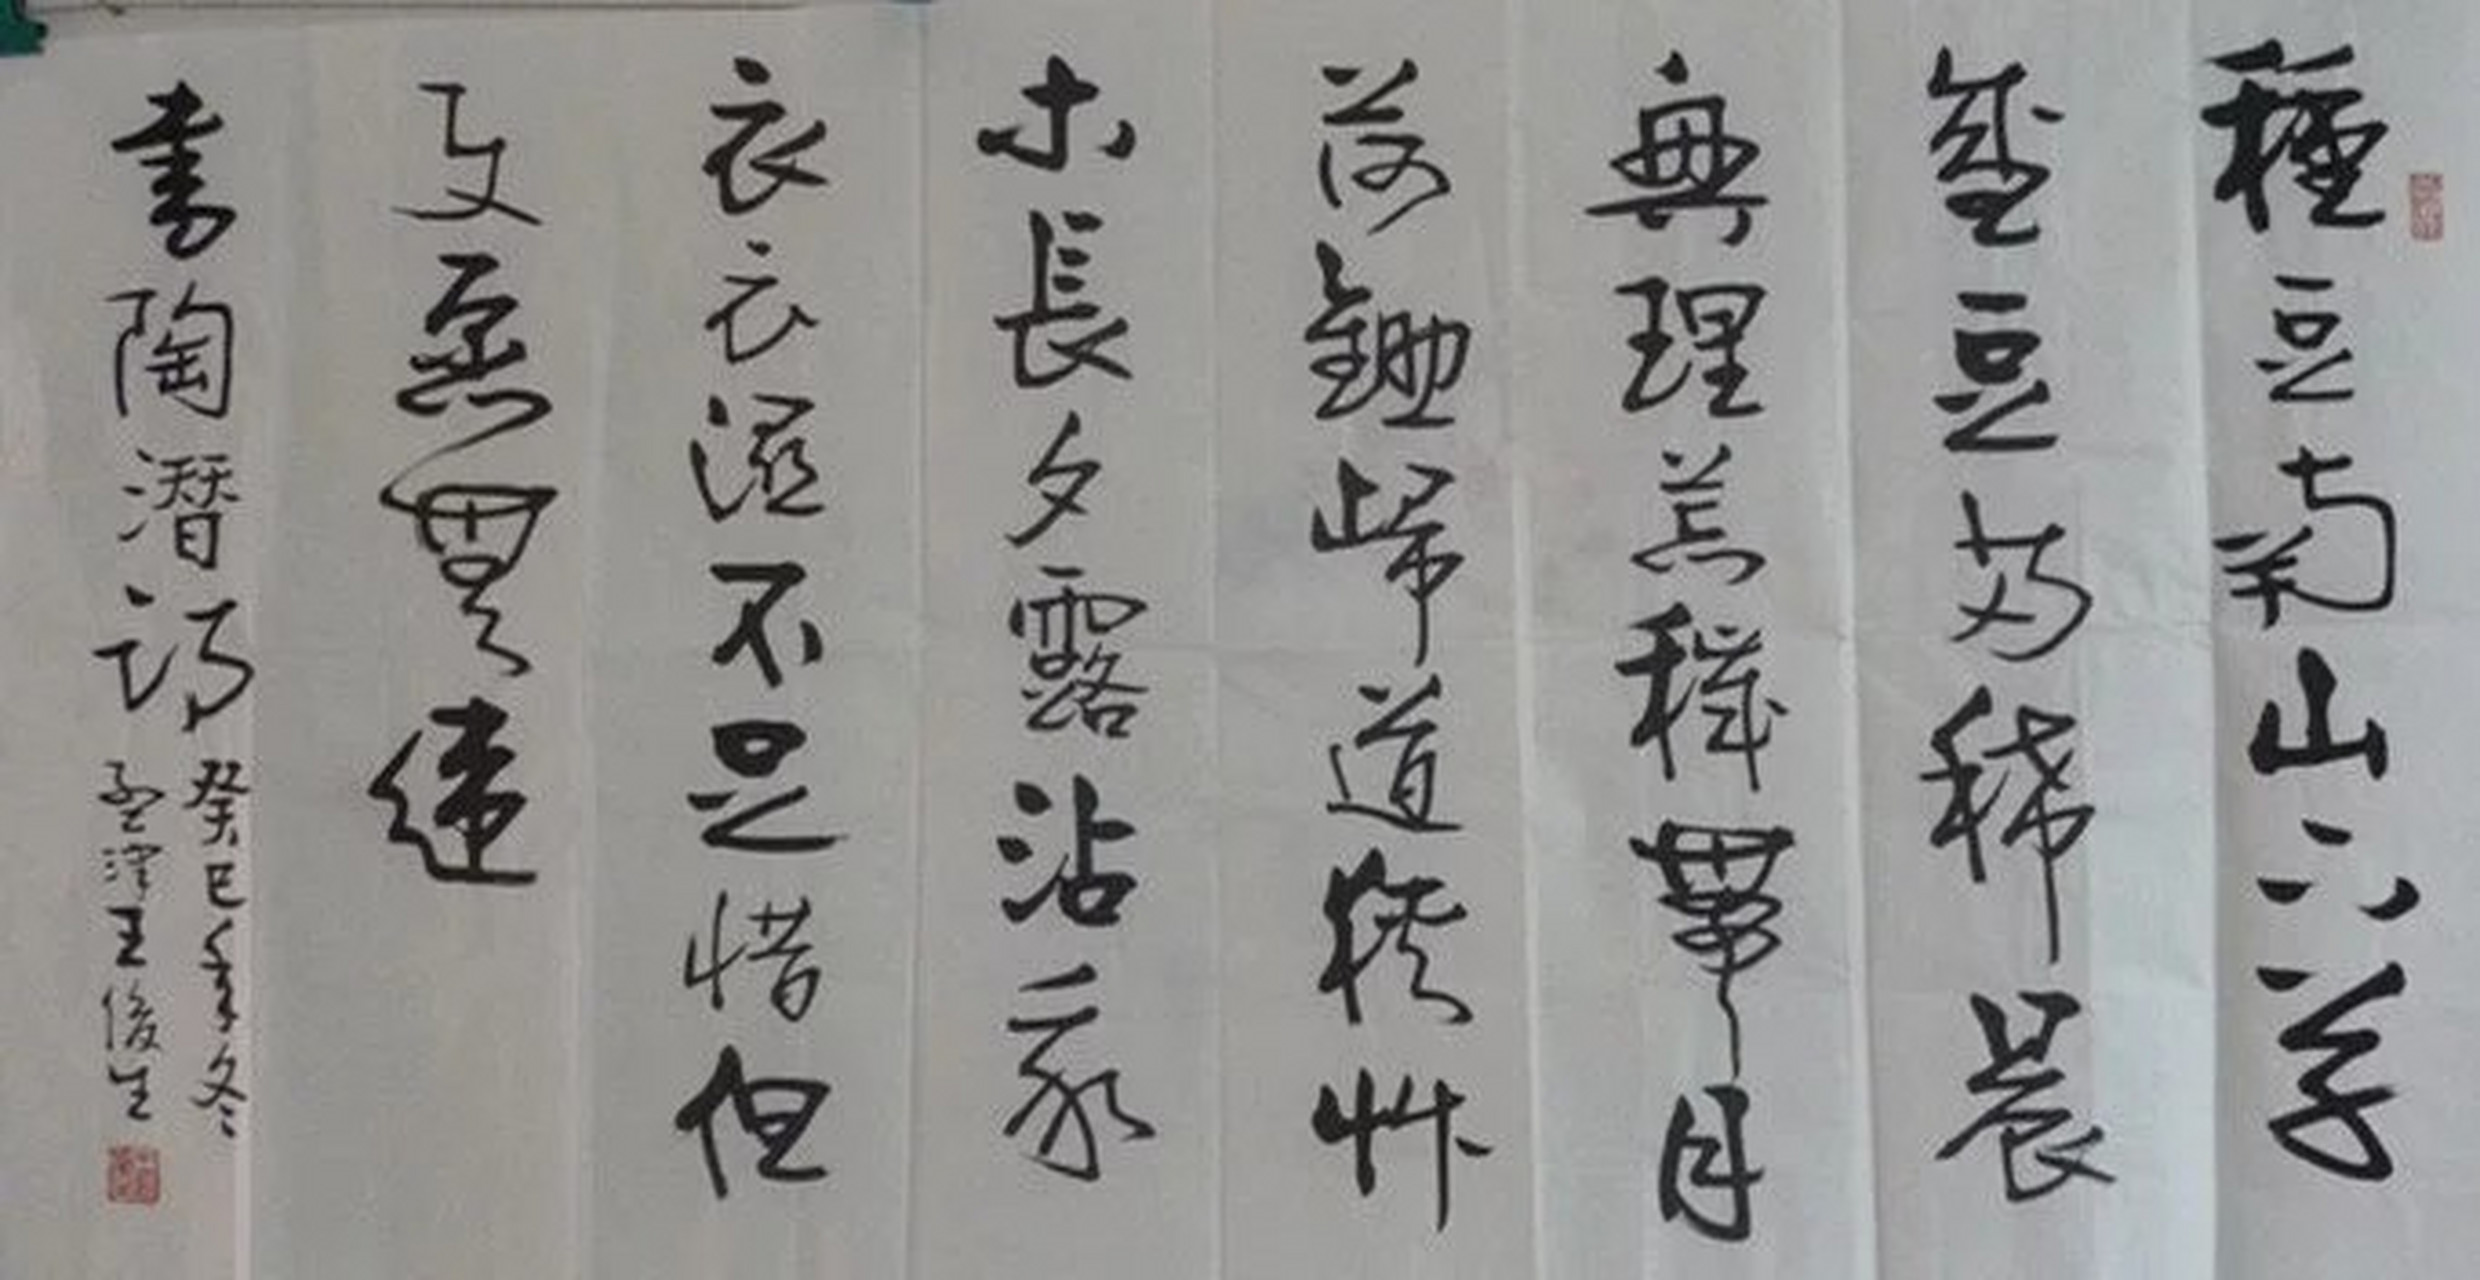 種豆南山下草
盛豆苗稀晨
興理荒穢帶月
荷鋤歸道狹艸
木長夕露沾我
衣衣濕不足惜但
使愿無違
書陶潛詩
癸巳年冬
孟津王俊生